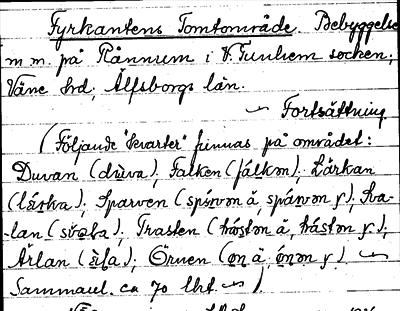 Fyrkantens Tomtområde. Bebyggelse
m m. på Rånnum i V. Tunhem socken,
Väne hd, Älfsborgs län.
Fortsättning
(Följande "kvarter" finnas på området:
Duvan (dùva); Falken (fálkən); Lärkan
Sparven (spárvən å, spárvən y); Sva-
lan Trasten (tràstən å, trástən y);
Ärlan Örnen
Sammanl. ca 70 lht.